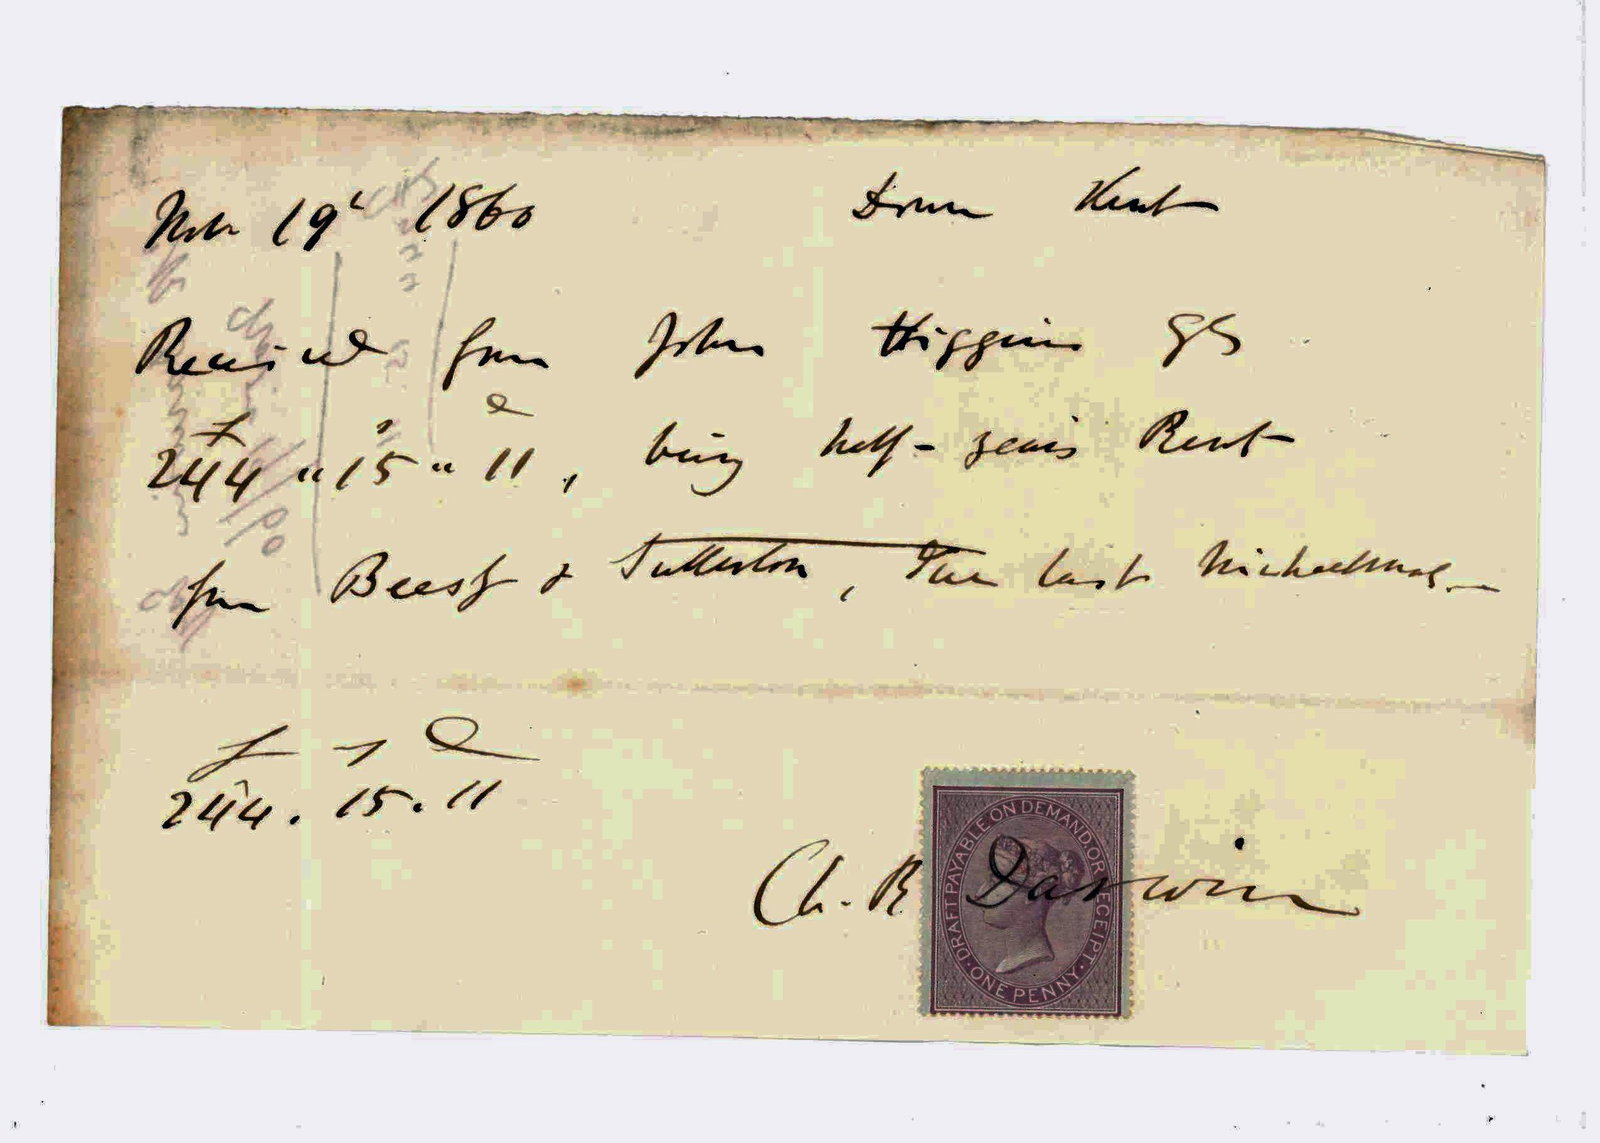 Nov 19t 1860 Down Kent
Received from John Higgins Esq
£ s d
244 " 15 " 11, being half-years Rent
from Beesby & Sutterton, Due last Michaelmas.—
£ s d
244. 15. 11
Ch. R Darwin
DRAFT PAYABLE ON DEMAND OR RECEIPT.
ONE PENNY